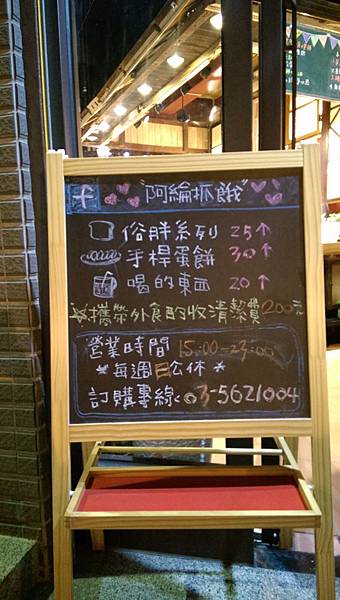 f "阿綸抓餓"
俗胖系列 25↑
手桿蛋餅 30↑
喝的東西 20↑
※攜帶外食酌收清潔費200元
營業時間 15:00-23:00
*每週日公休*
訂購專線:03-5621004